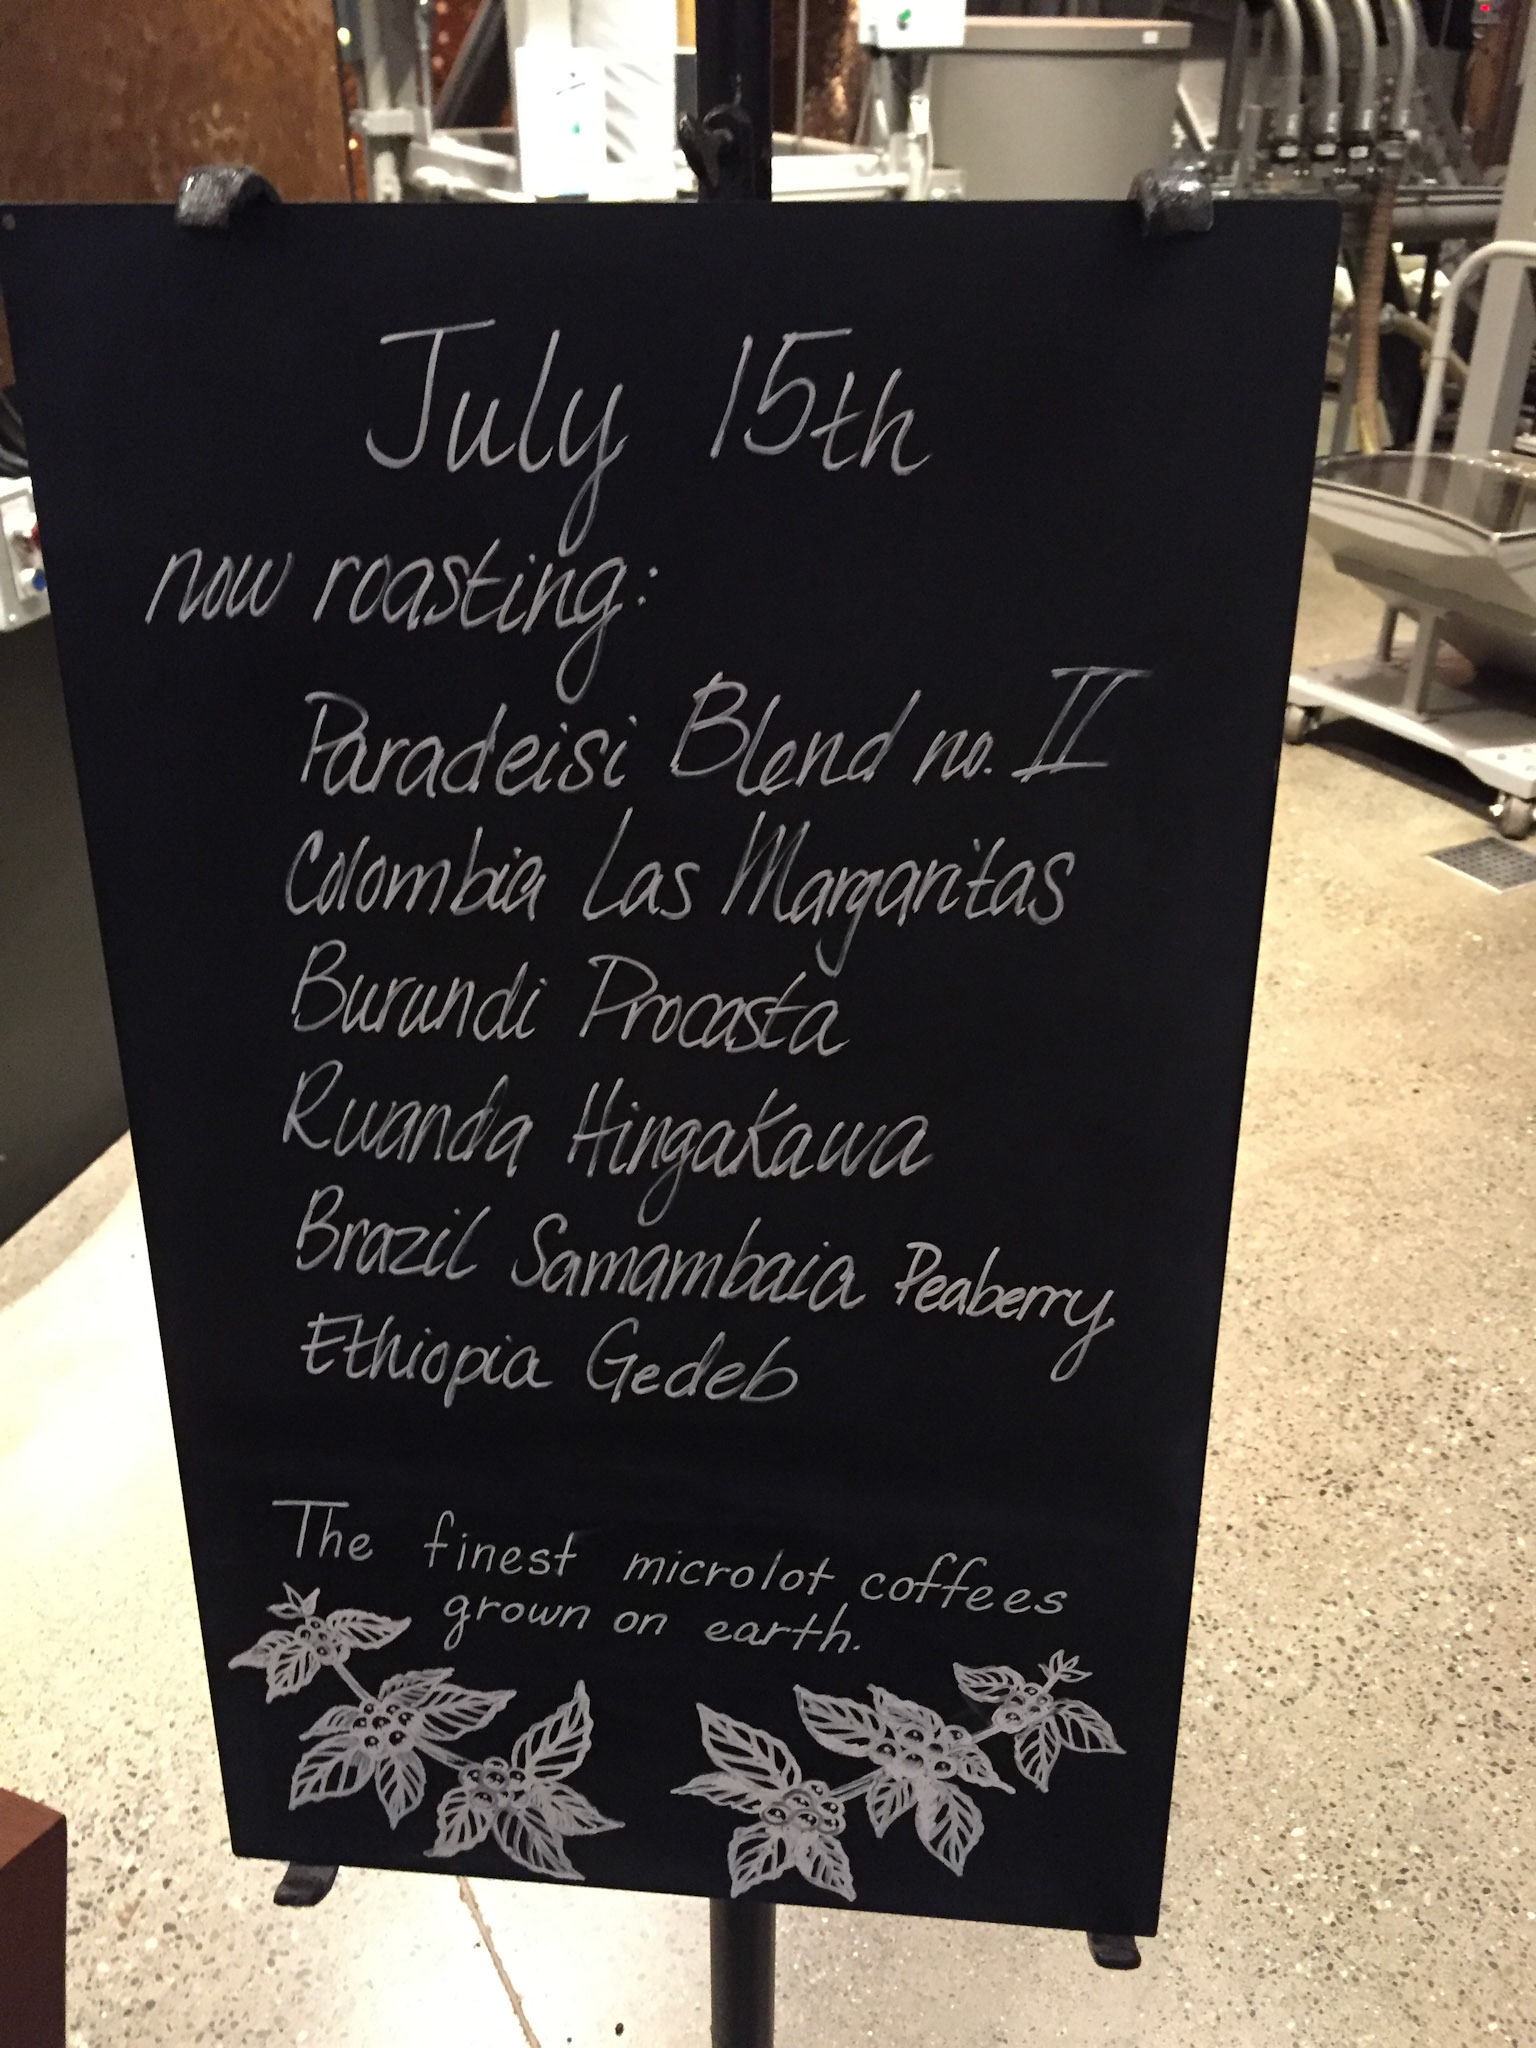 July 15th
now roasting:
Paradeisi Blend no. II
Colombia Las Margaritas
Burundi Procasta
Rwanda Hingakawa
Brazil Samambaia Peaberry
Ethiopia Gedeb
The finest microlot coffees
grown on earth.